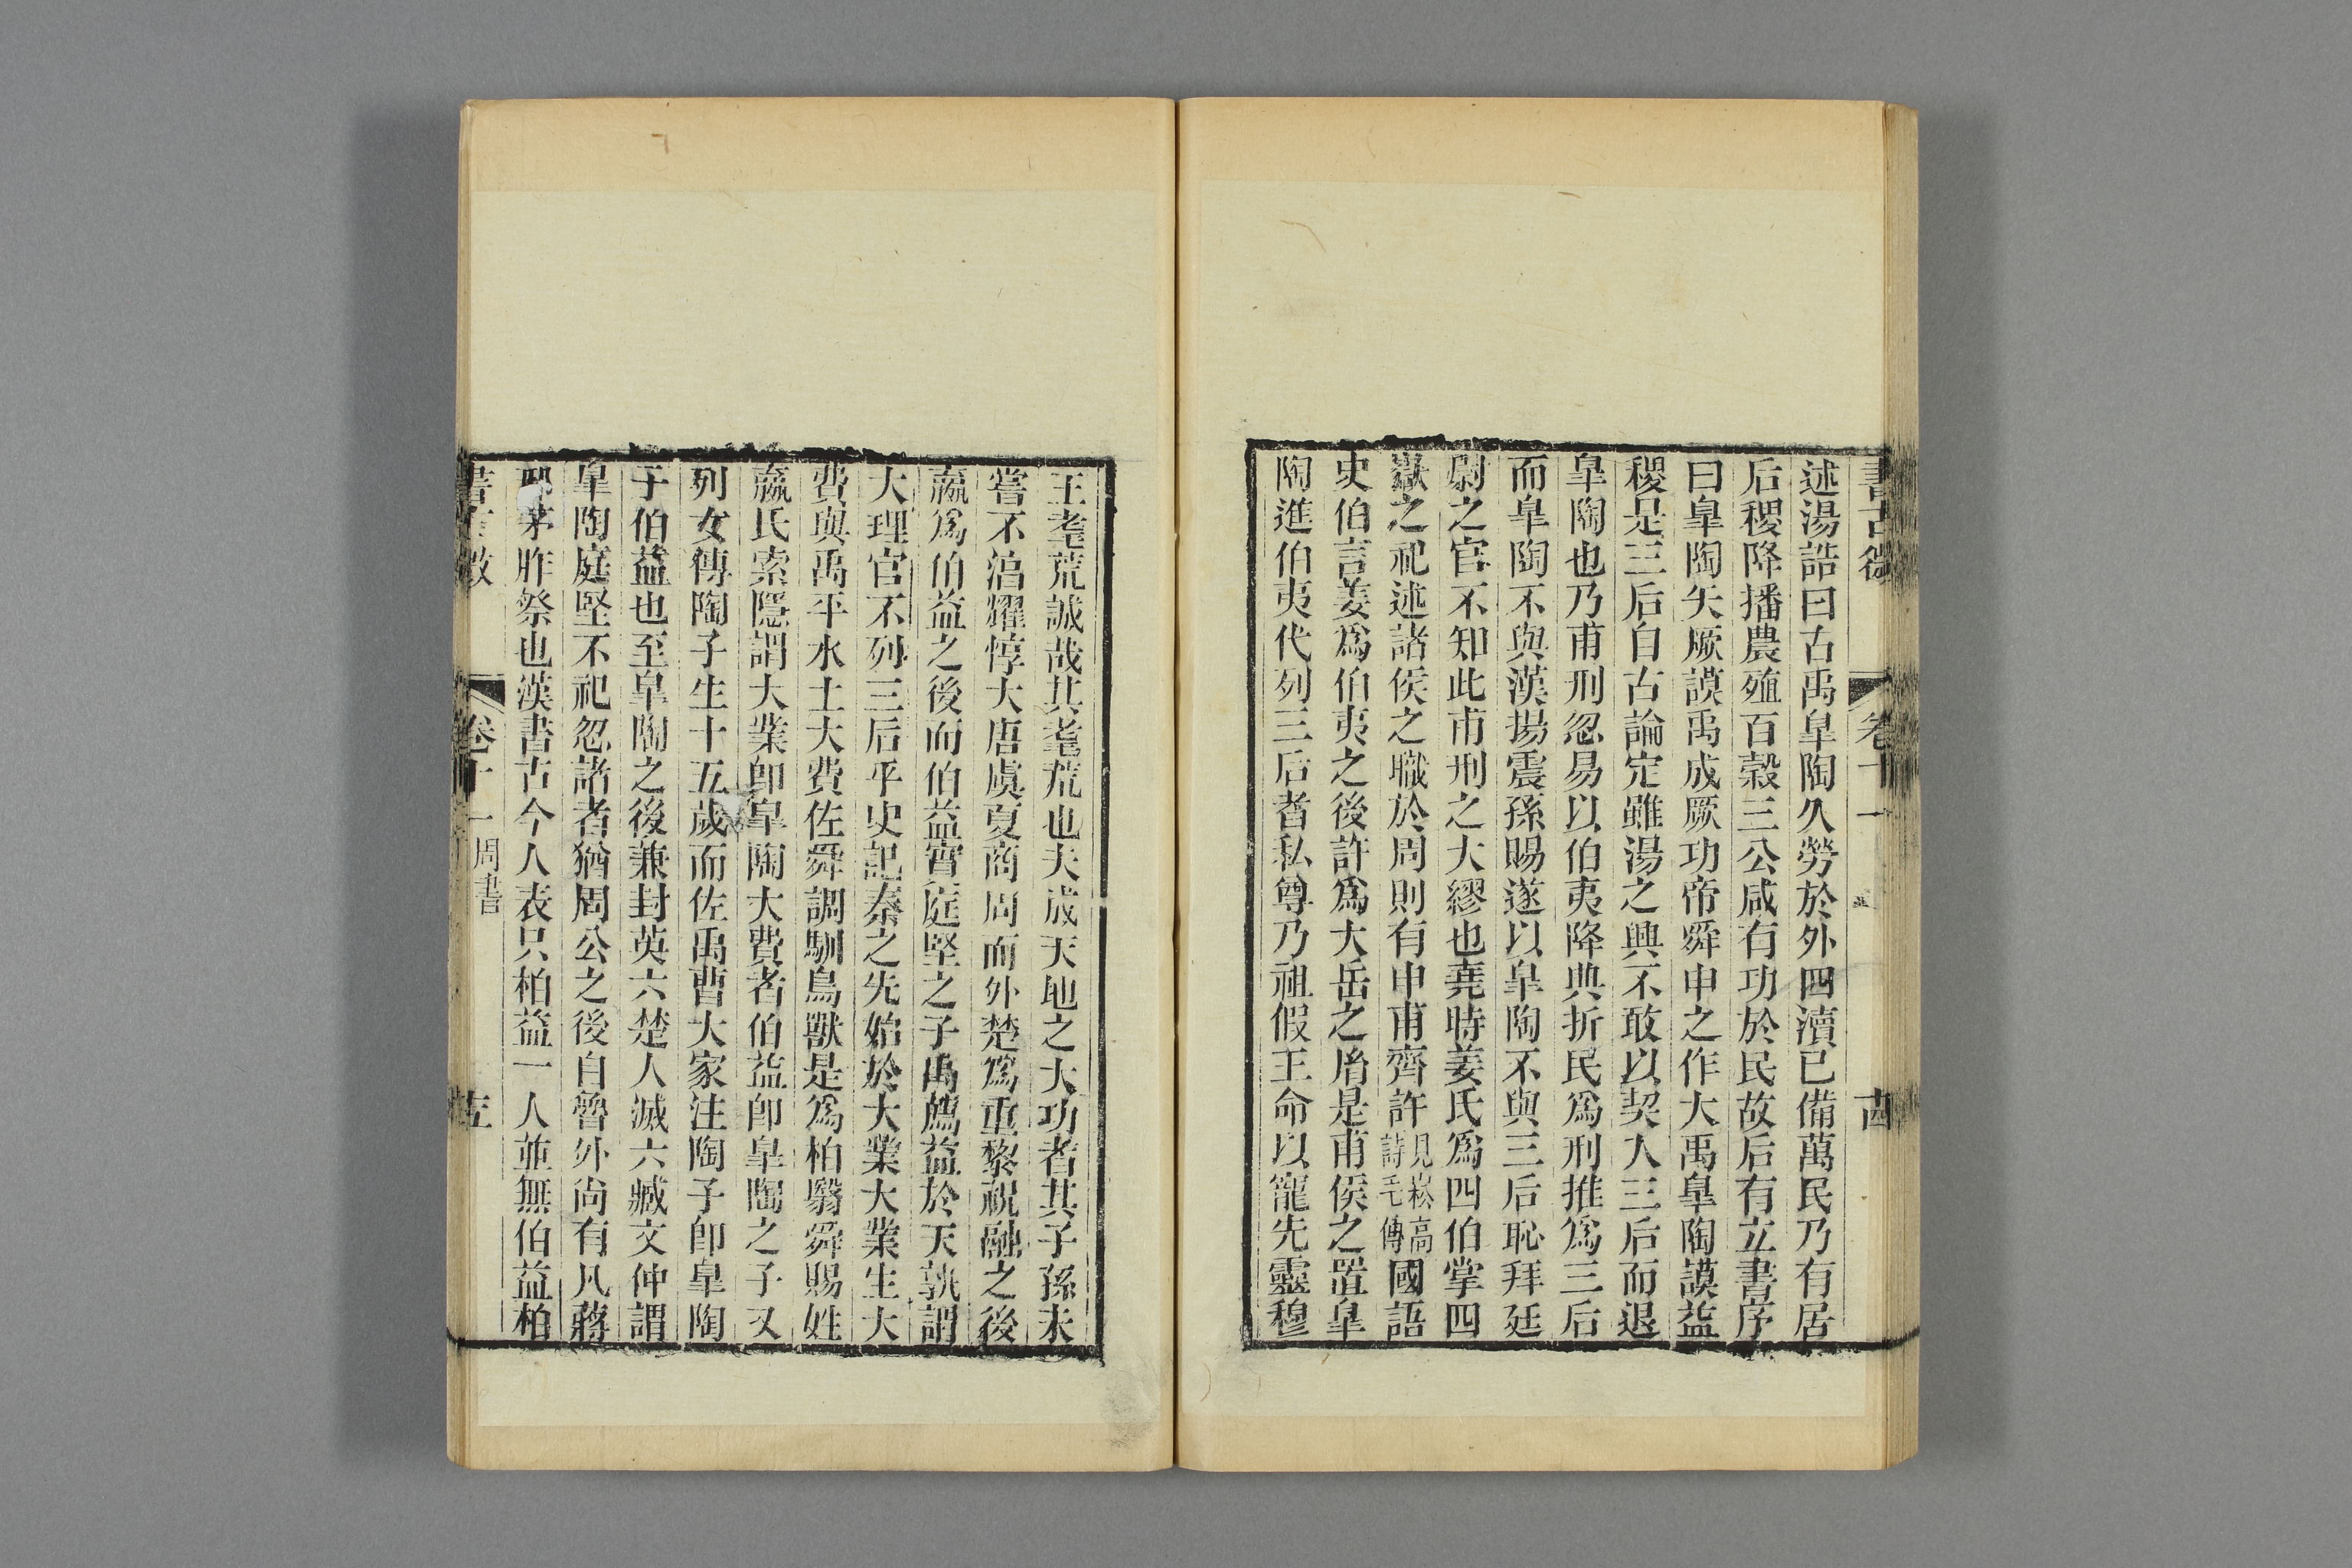 書古微 卷十一 古
述湯誥曰古禹皐陶久勞於外四瀆已備萬民乃有居
后稷降播農殖百穀三公咸有功於民故后有立書序
曰皐陶矢厥謨禹成厥功帝舜申之作大禹皐陶謨益
稷是三后自古論定雖湯之興不敢以契入三后而退
皐陶也乃甫刑忽易以伯夷降典折民爲刑推爲三后
而皐陶不與漢揚震孫賜遂以皐陶不與三后恥拜廷
尉之官不知此甫刑之大繆也堯時姜氏爲四伯掌四
嶽之祀述諸侯之職於周則有申甫齊許見崧高詩毛傳國語
史伯言姜爲伯夷之後許爲大岳之胤是甫侯之置皐
陶進伯夷代列三后者私尊乃祖假王命以寵先靈穆
王耄荒誠哉其耄荒也夫成天地之大功者其子孫未
嘗不滔耀惇大唐虞夏商周而外楚爲重黎祝融之後
嬴爲伯益之後而伯益實庭堅之子禹薦益於天孰謂
大理官不列三后乎史記秦之先始於大業大業生大
費與禹平水土大費佐舜調馴鳥獸是爲柏翳舜賜姓
嬴氏索隱謂大業卽皐陶大費者伯益卽皐陶之子又
列女傳陶子生十五歲而佐禹曹大家注陶子卽皐陶
子伯益也至皐陶之後兼封英六楚人滅六臧文仲謂
皐陶庭堅不祀忽諸者猶周公之後自魯外尚有凡蔣
邢茅胙祭也漢書古今人表只柏益一人並無伯益柏
書古微 卷十一 周書